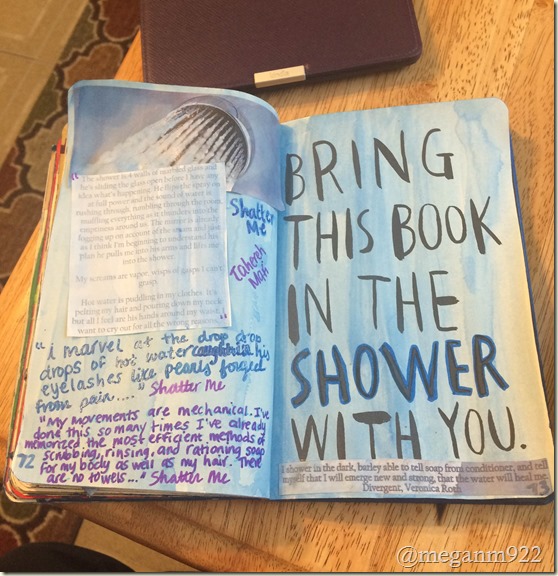 "The shower is 4 walls of marbled glass and
he's sliding the glass open before I have any
idea what's happening. He flips the spray on
at full power and the sound of water is
rushing through, rumbling through the room,
muffling everything as it thunders into the
emptiness around us. The mirror is already
fogging up on account of the steam and just
as I think I'm beginning to understand his
plan he pulls me into his arms and lifts me
into the shower.
My screams are vapor, wisps of gasps I can't
grasp.
Hot water is puddling in my clothes. It's
pelting my hair and pouring down my neck
but all I feel are his hands around my waist. I
want to cry out for all the wrong reasons."
Shatter
Me
Tahereh
Mafi
"i marvel at the drop drop
drops of hot water caught in his
eyelashes like pearls forged
from pain...." Shatter Me
"My movements are mechanical. I've
done this so many times I've already
memorized the most efficient methods of
scrubbing, rinsing, and rationing soap
for my body as well as my hair. There
are no towels..." Shatter Me
72
BRING
THIS BOOK
IN THE
SHOWER
WITH YOU.
I shower in the dark, barley able to tell soap from conditioner, and tell
myself that I will emerge new and strong, that the water will heal me.
Divergent, Veronica Roth
73
@meganm922